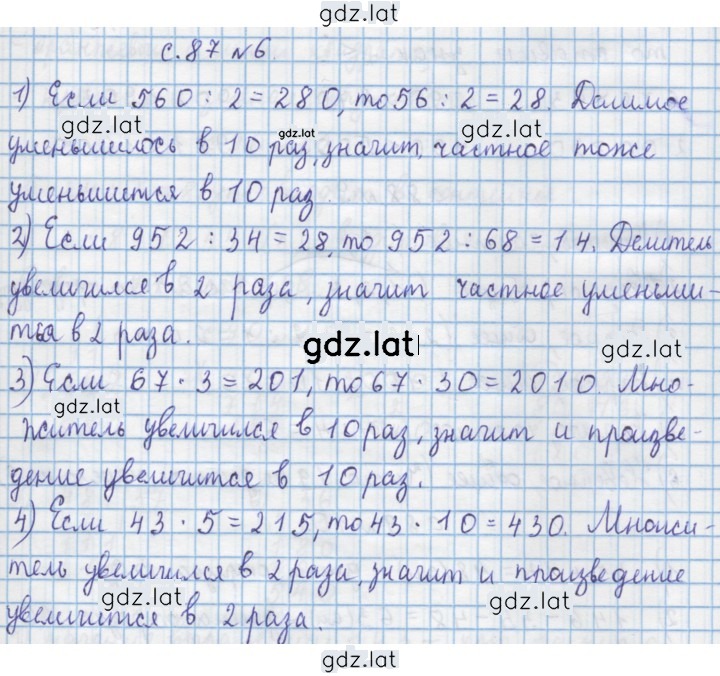 gdz.lat
с. 87 № 6.
1) Если 560 : 2 = 280, то 56 : 2 = 28. Делимое
gdz.lat gdz.lat gdz.lat
уменьшилось в 10 раз, значит, частное тоже
уменьшится в 10 раз.
2) Если 952 : 34 = 28, то 952 : 68 = 14. Делитель
увеличился в 2 раза, значит частное уменьши-
ться в 2 раза.
gdz.lat gdz.lat
3) Если 67 · 3 = 201, то 67 · 30 = 2010. Мно-
gdz.lat
житель увеличился в 10 раз, значит и произве-
дение увеличится в 10 раз.
gdz.lat
4) Если 43 · 5 = 215, то 43 · 10 = 430. Множи-
тель увеличился в 2 раза, значит и произведение
gdz.lat gdz.lat
увеличится в 2 раза.
gdz.lat